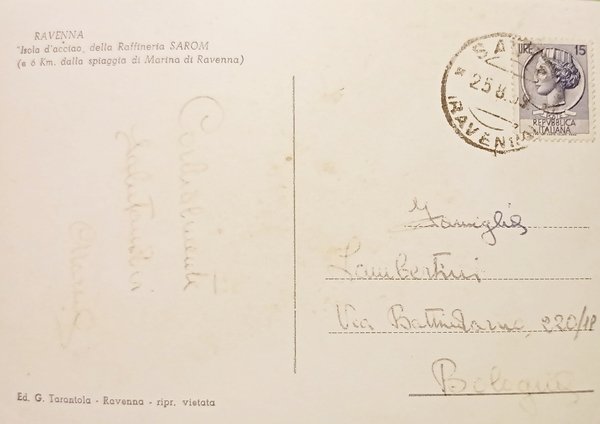 RAVENNA
"Isola d'acciao, della Raffineria SAROM
(a 6 Km. dalla spiaggia di Marina di Ravenna)
Cordialmente
salutandovi
LIRE 15
REPVBBLICA
ITALIANA
(RAVENNA)
Famiglia
Lambertini
Via Battindarno, 220/18
Bologna
Ed. G. Tarantola - Ravenna - ripr. vietata